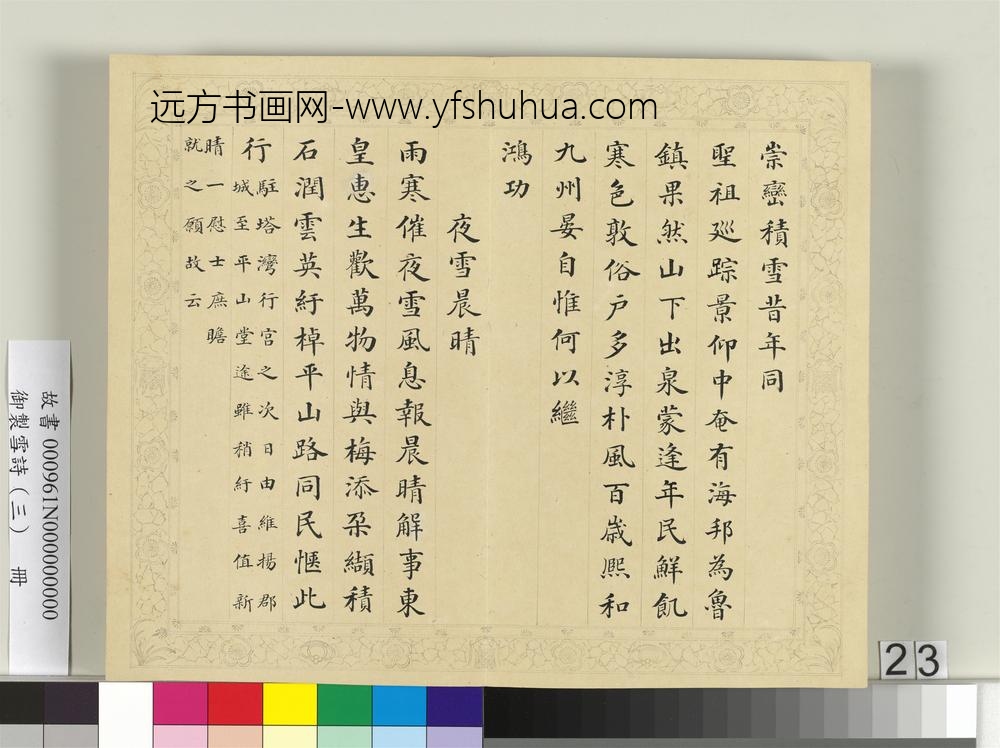 远方书画网-www.yfshuhua.com
崇巒積雪昔年同
聖祖廵踪景仰中奄有海邦為魯
鎮果然山下出泉蒙逢年民鮮飢
寒色敦俗户多淳朴風百歲熈和
九州晏自惟何以繼
鴻功
夜雪晨晴
雨寒催夜雪風息報晨晴解事東
皇惠生歡萬物情與梅添朶纈積
石潤雲英紆棹平山路同民愜此
行駐塔灣行宫之次日由維揚郡
城至平山堂途雖稍紆喜值新
晴一慰士庶瞻
就之願故云
故書 000961N000000000
御製雪詩（三） 冊
23